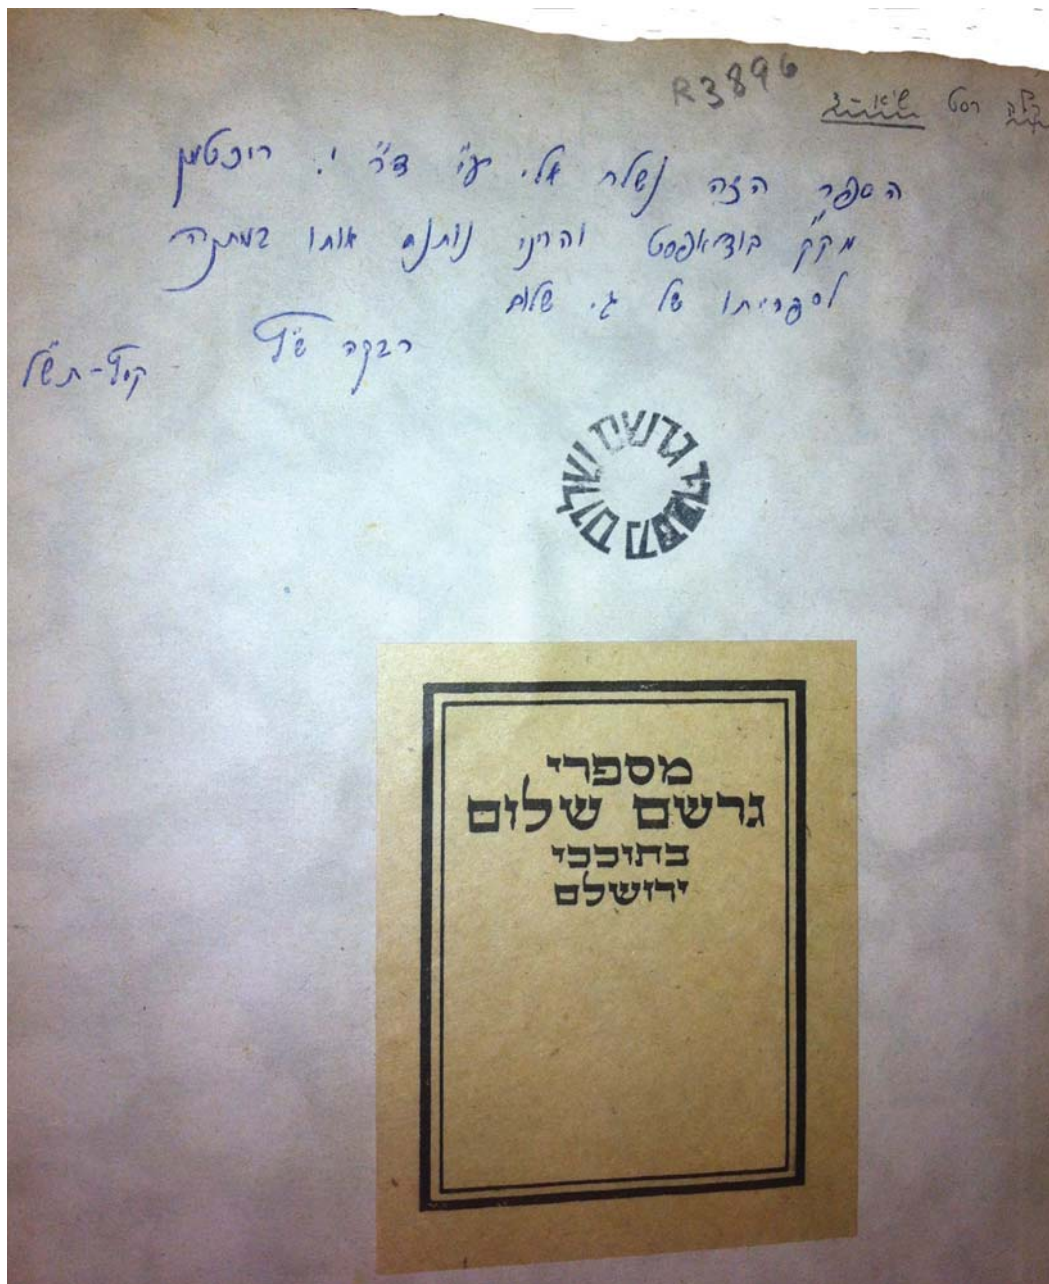 R3896
הספר הזה נשלח אלי ע"י ד"ר י. ריכטמן
מק"ק בודאפסט והריני נותנת אותו במתנה
לספריתו של ג. שלום
רבקה ש"ץ
קיץ-תש"ל
מספרי גרשם שלום
מספרי
גרשם שלום
בתוככי
ירושלם